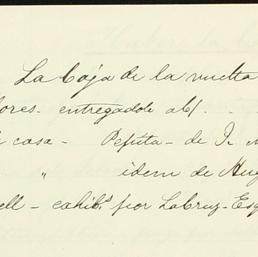 La Caja de la vuelta
ores. entregadole al
casa - Pepita - de I.
" idem de Hug
ell - cahibs por LaCruz - Esq